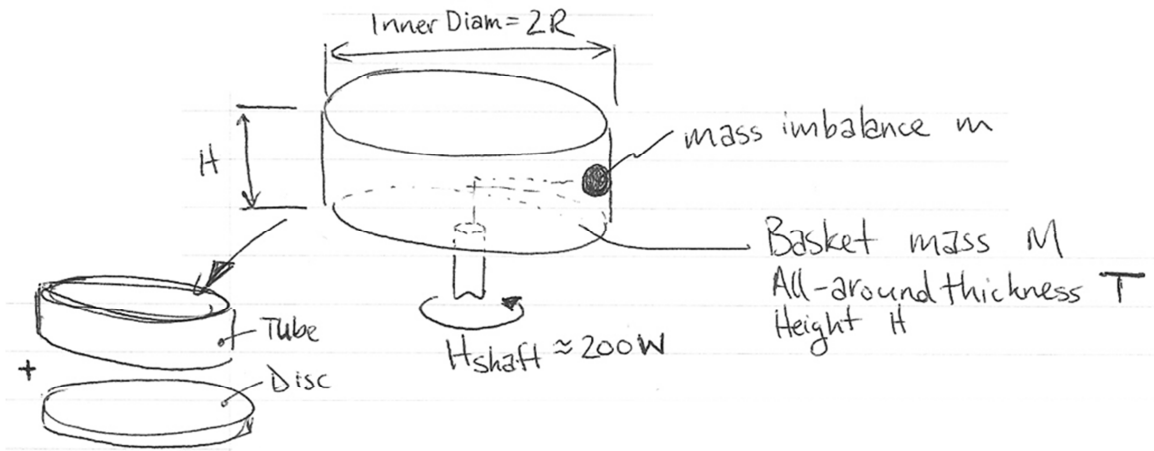 Inner Diam = 2R
mass imbalance m
H
Basket mass M
All-around thickness T
Height H
Tube
Hshaft ≈ 200W
+
Disc